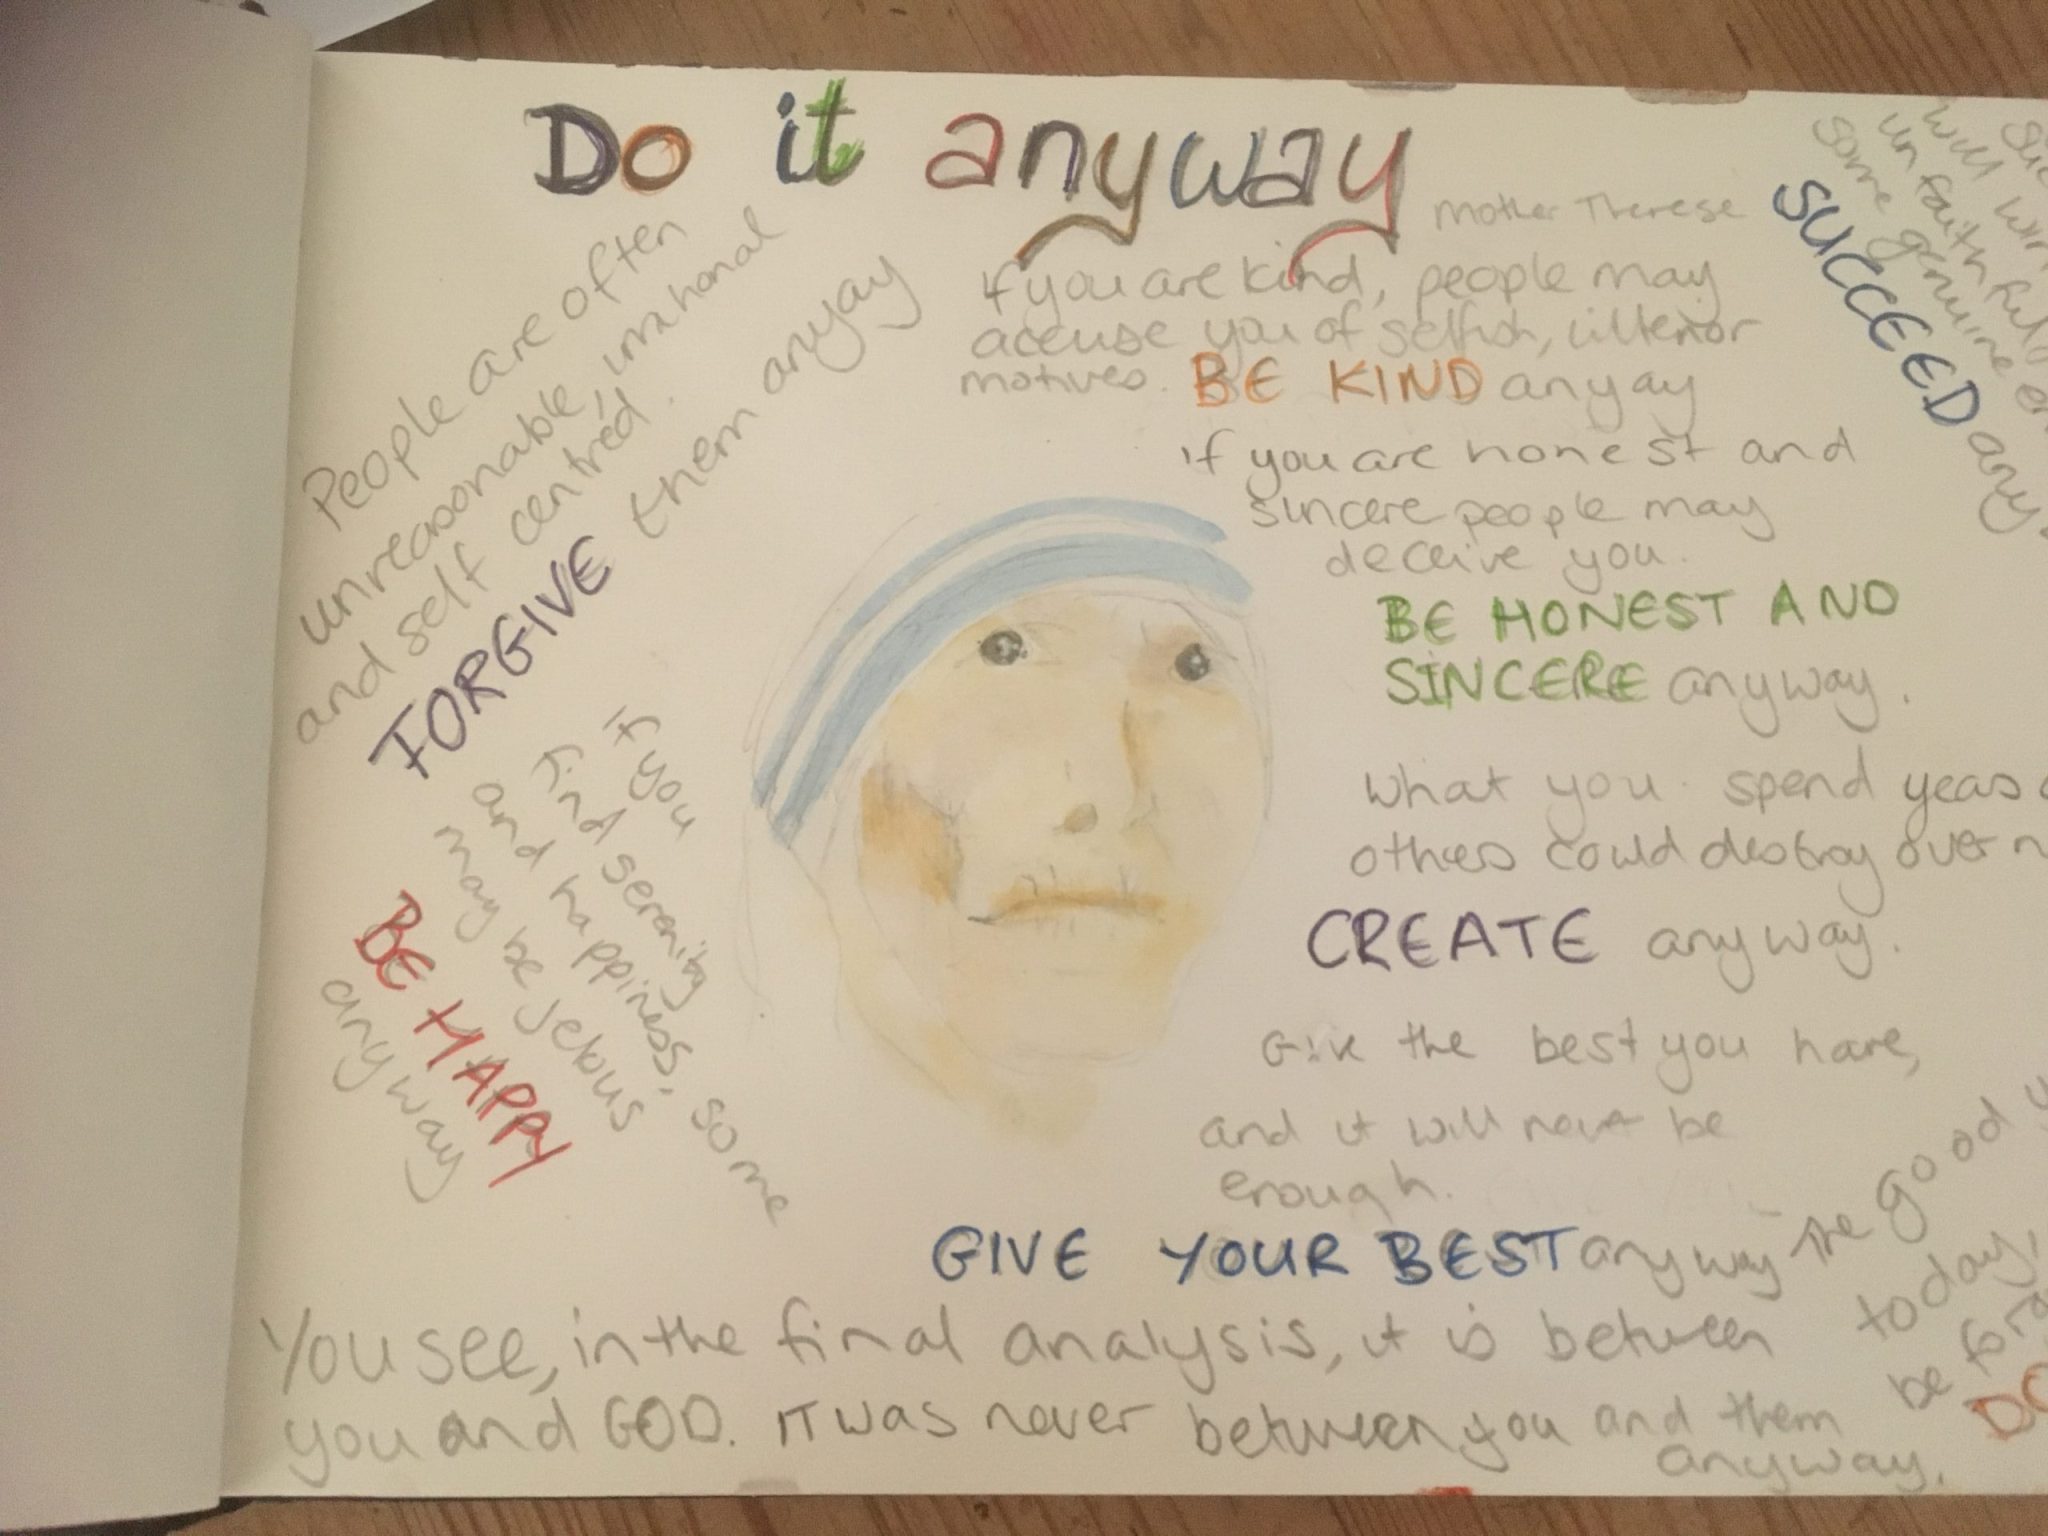 Do it anyway
Mother Therese
People are often
unreasonable, irrational
and self centred.
FORGIVE them anyay
If you are kind, people may
accuse you of selfish, ulterior
motives. BE KIND anyay
If you are honest and
sincere people may
deceive you.
BE HONEST AND
SINCERE anyway.
What you spend years
others could destroy over n
CREATE anyway.
Give the best you have,
and it will never be
enough.
GIVE YOUR BEST anyway
If you
find serenity
and happiness, some
may be jelous
BE HAPPY
anyway
suc
will win
unfaithful
some genuine en
SUCCEED any
The good y
today,
be for
DO
You see, in the final analysis, it is between
you and GOD. IT was never between you and them
anyway.